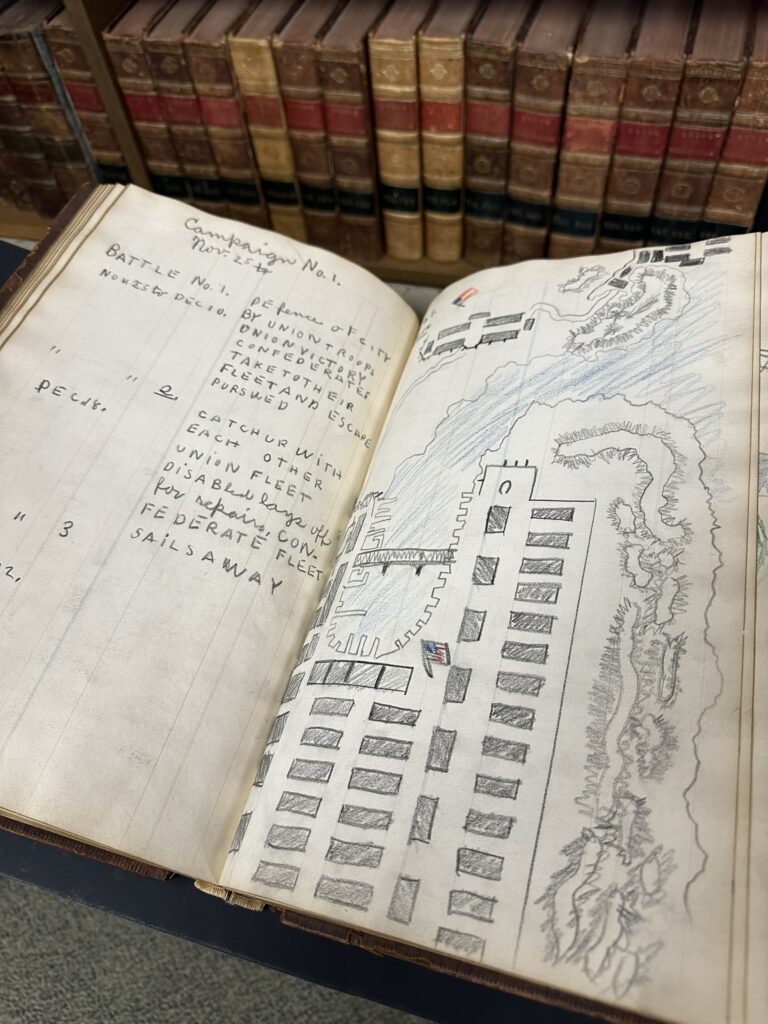 Campaign No. 1.
Nov. 25th
BATTLE No. 1. DEfence OF CITY
Nov 25 to DEC 10. BY UNION TROOPS
UNION VICTORY
CONFEDERATES
TAKE TO THEIR
FLEET AND ESCAPE
" " 2. PURSUED
DEC 18. CATCHUR WITH
EACH OTHER
UNION FLEET
DISABLED lays off
for repairs, CON-
" 3 FEDERATE FLEET
SAILS AWAY